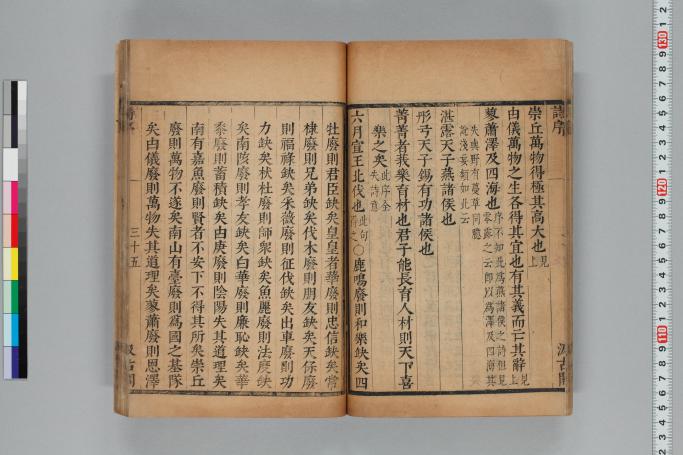 詩序
崇丘萬物得極其高大也見上
由儀萬物之生各得其宜也有其義而亡其辭見上
蓼蕭澤及四海也序不知此爲燕諸侯之詩但見零露之云即以爲澤及四海其
失與野有蔓草同臆說淺妄類如此云
湛露天子燕諸侯也
彤弓天子錫有功諸侯也
菁菁者莪樂育材也君子能長育人材則天下喜
樂之矣此序全失詩意
六月宣王北伐也此句得之○鹿鳴廢則和樂缺矣四
牡廢則君臣缺矣皇皇者華廢則忠信缺矣常
棣廢則兄弟缺矣伐木廢則朋友缺矣天保廢
則福祿缺矣采薇廢則征伐缺矣出車廢則功
力缺矣杕杜廢則師衆缺矣魚麗廢則法度缺
矣南陔廢則孝友缺矣白華廢則廉恥缺矣華
黍廢則蓄積缺矣由庚廢則陰陽失其道理矣
南有嘉魚廢則賢者不安下不得其所矣崇丘
廢則萬物不遂矣南山有臺廢則爲國之基隊
矣由儀廢則萬物失其道理矣蓼蕭廢則恩澤
三十五
汲古閣